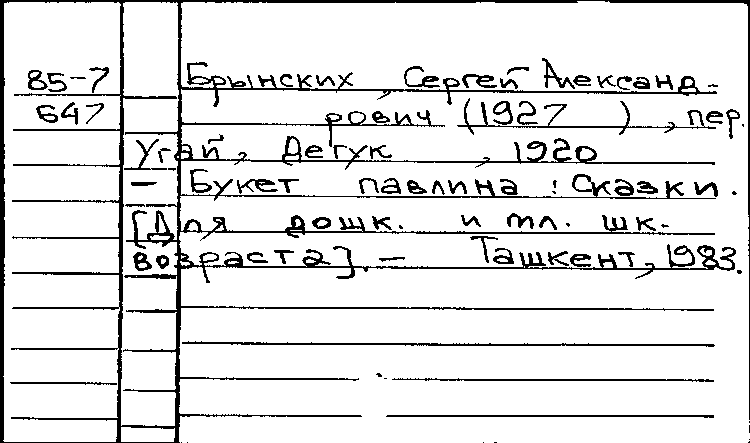 85-7 Брынских, Сергей Александ-
647 рович (1927 ), пер.
Угай, Дегук , 1920
- Букет павлина : Сказки.
[Для дошк. и мл. шк.
возраста]. - Ташкент, 1983.